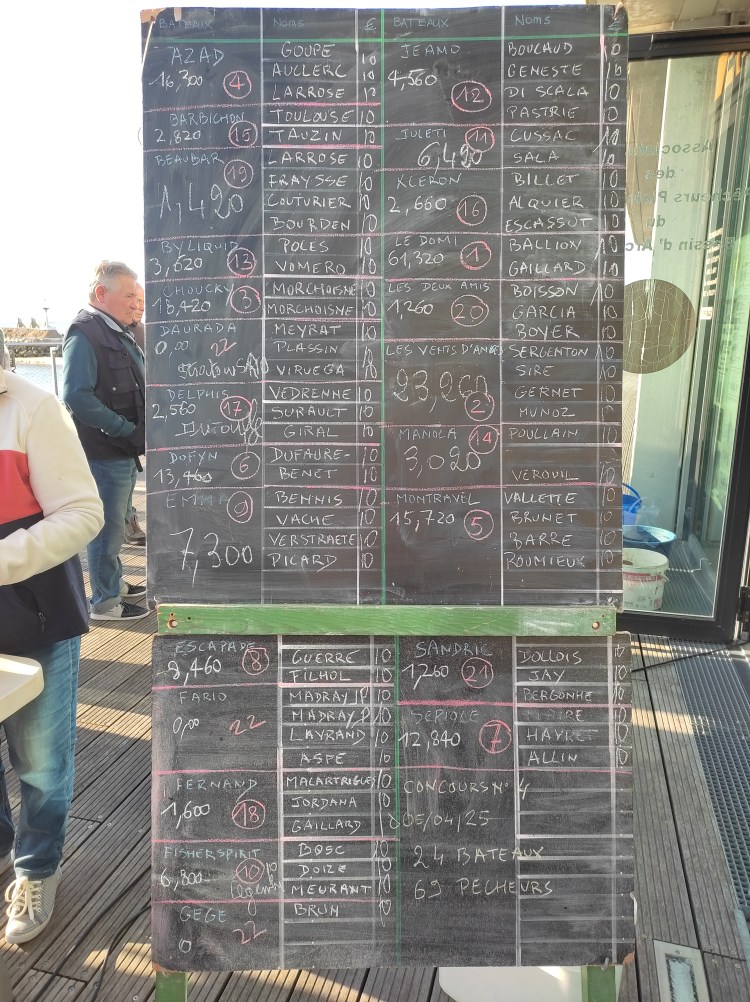 BATEAUX NOMS € BATEAUX NOMS €
AZAD
16,300 4
GOUPE 10
AUCLERC 10
LARROSE 10
BARBICHON
2,820 15
TOULOUSE 10
TAUZIN 10
BEAUBAR
1,420 19
LARROSE 10
FRAYSSE 10
COUTURIER 10
BOURDEN 10
BYLIQUID
3,620 13
POLES 10
VOMERO 10
CHOUCKY
18,420 3
MORCHOISNE 10
MORCHOISNE 10
DAURADA
0,00 22
MEYRAT 10
PLASSIN
VIRUEGA 10
DELPHIS
2,560 17
VEDRENHE 10
SURAULT 10
GIRAL 10
DOFYN
13,460 6
DUFAURE- 10
BENET 10
EMMA
7,300 9
BENNIS 10
VACHE 10
VERSTRAETE 10
PICARD 10
JEAMO
4,560 12
BOUCAUD 10
GENESTE 10
DI SCALA 10
PASTRIE 10
JULETI
6,420 11
CUSSAC 10
SALA 10
KLERON
2,660 16
BILLET 10
ALQUIER 10
ESCASSUT 10
LE DOMI
61,320 1
BALLION 10
GAILLARD 10
LES DEUX AMIS
1,260 20
BOISSON 10
GARCIA 10
BOYER 10
LES VENTS D'ANGES
23,260 2
SERGENTON 10
SIRE 10
GERNET 10
MUNOZ 10
MANOLA
3,020 14
POULLAIN 10
VEROUIL 10
MONTRAVEL
15,720 5
VALLETTE 10
BRUNET 10
BARRE 10
ROUMIEUX 10
ESCAPADE
8,460 8
GUERRE 10
FILHOL 10
FARIO
0,00 22
MADRAY JP 10
MADRAY P 10
LAYRAND 10
ASPE 10
FERNAND
1,600 18
MALARTRIGUES 10
JORDANA 10
GAILLARD 10
FISHERSPIRIT
6,800 10
BOSC 10
DOIZE 10
MEURANT 10
GEGE
0 22
BRUN 10
SANDRIC
1,260 21
DOLLOIS 10
JAY 10
BERGONHE 10
SERIOLE
12,840 7
MAIRE 10
HAYRET 10
ALLIN 10
CONCOURS N° 4
05/04/25
24 BATEAUX
69 PECHEURS
Associa
des
êcheurs Pla
du
Bassin d'Arc